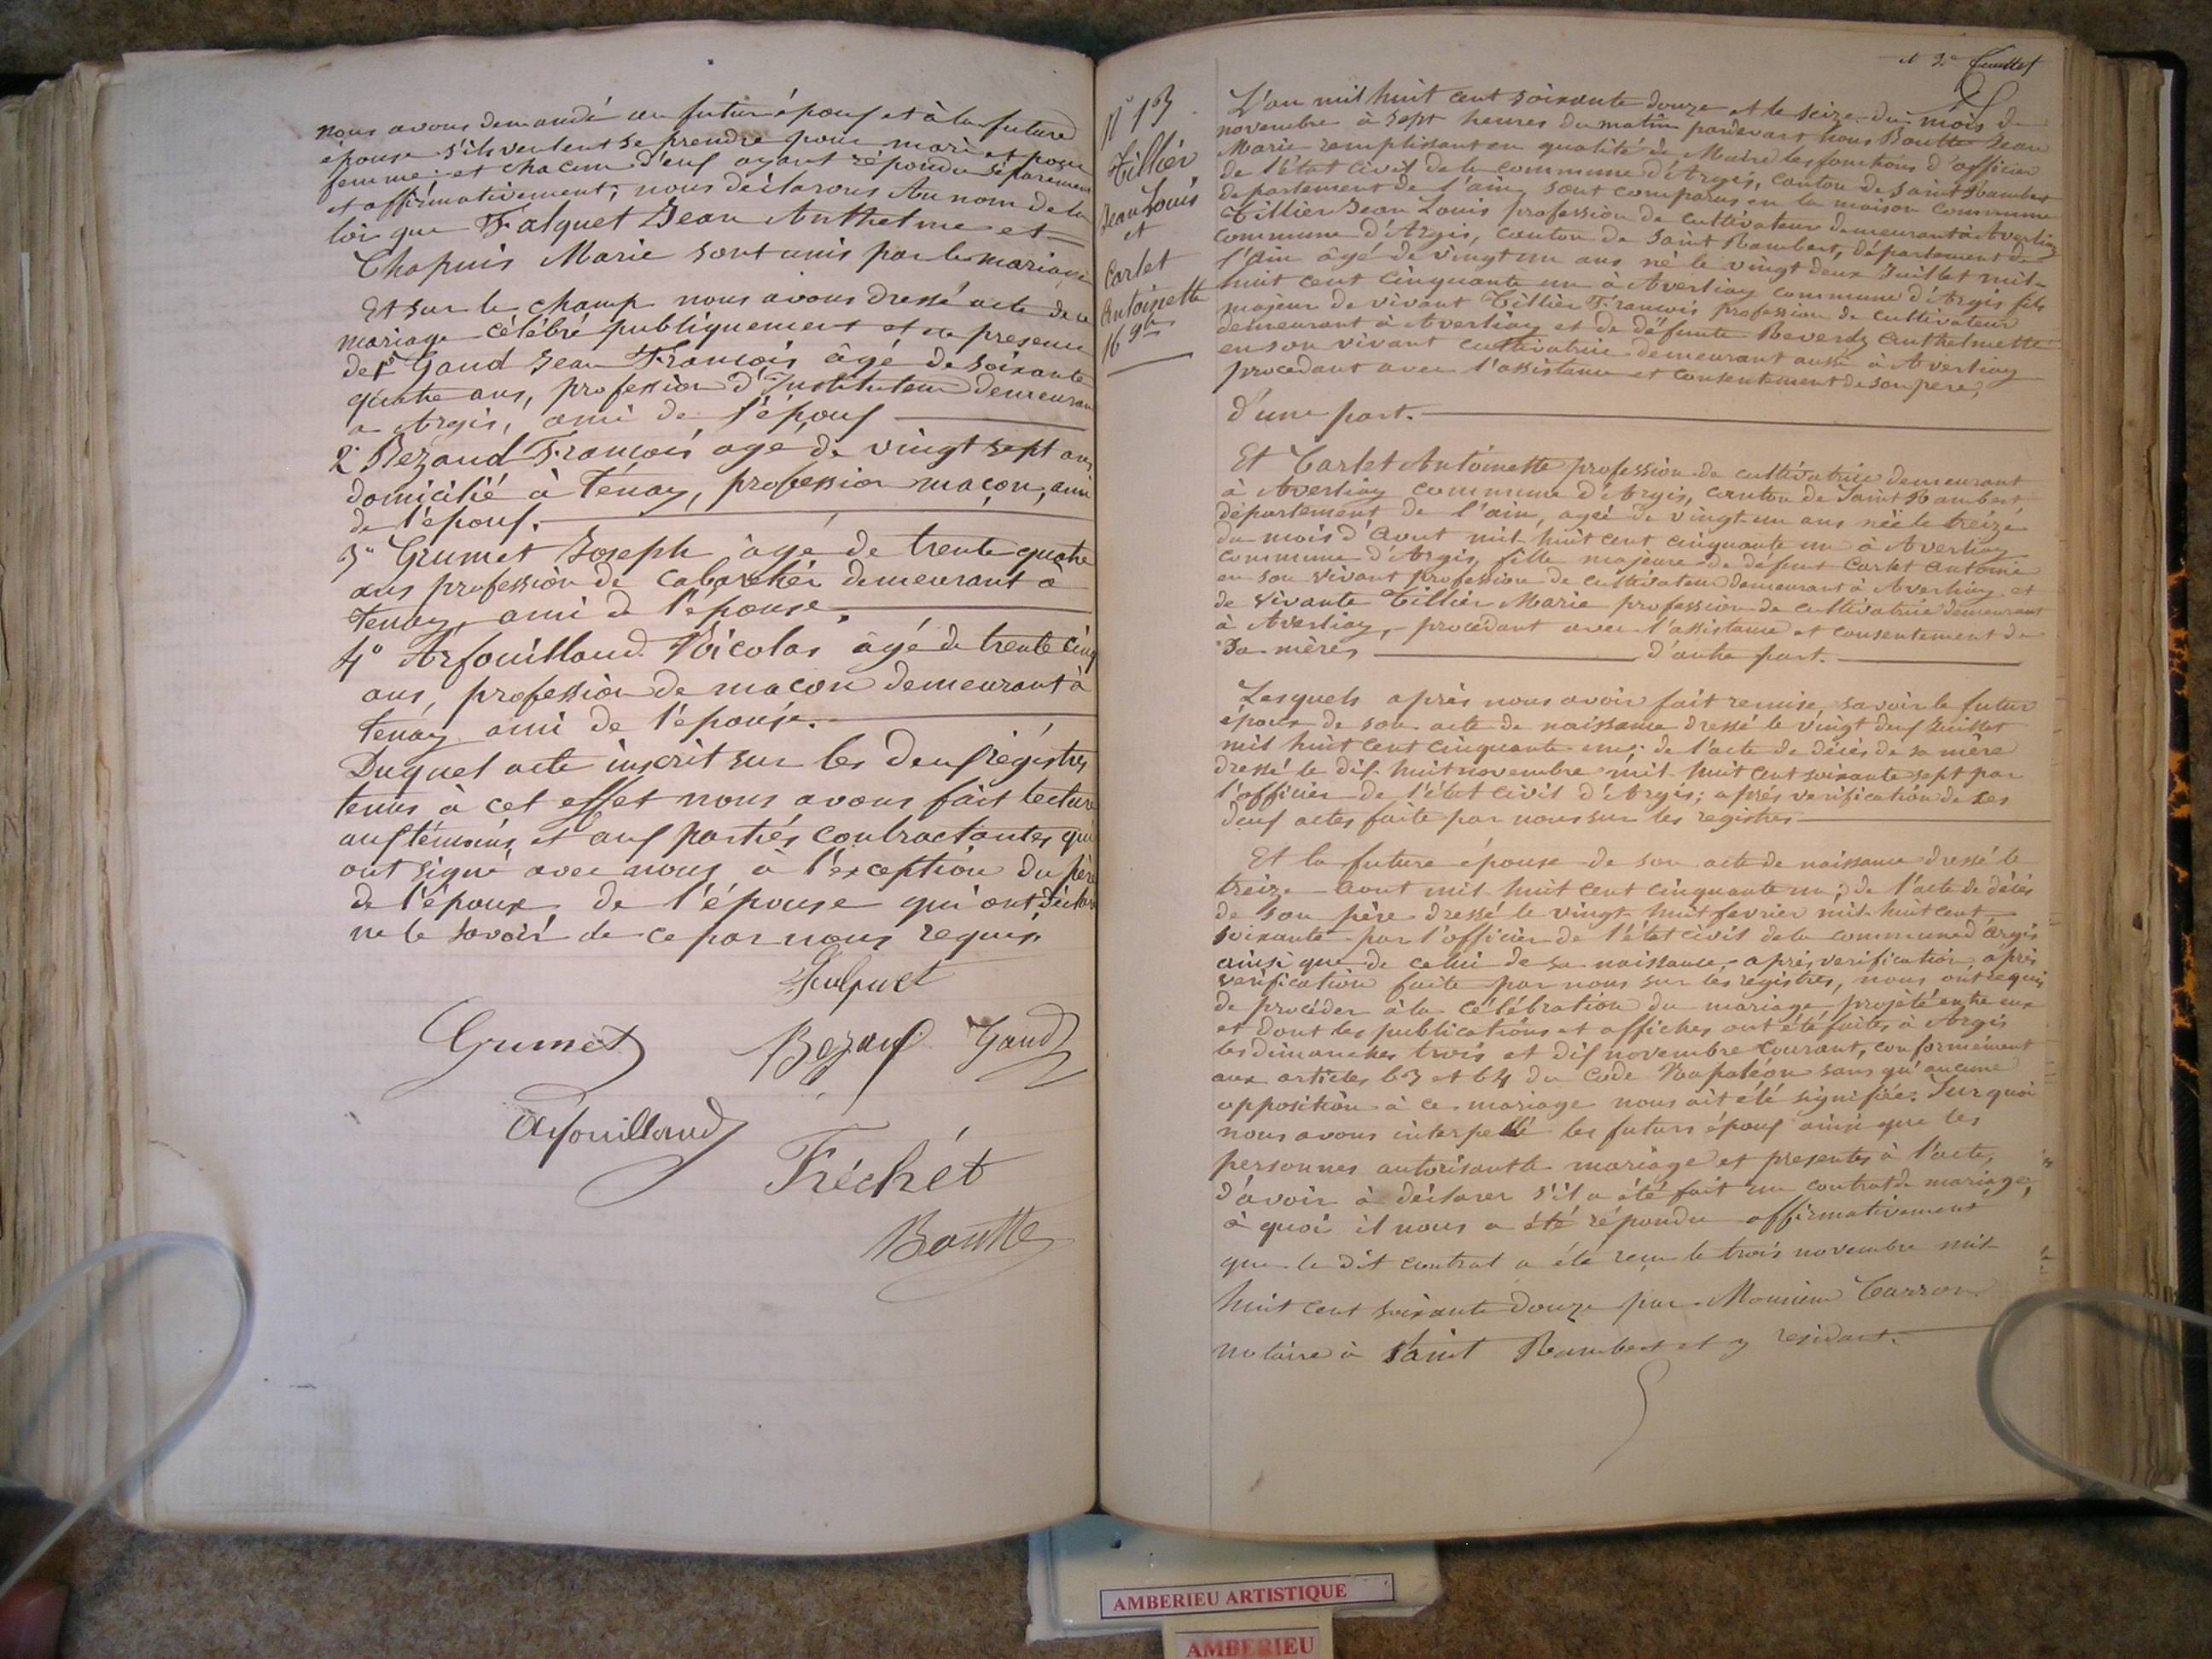 nous avons demandé au futur épouf et à la future
épouse s'ils veulent se prendre pour mari et pour
femme; et chacun d'euf ayant répondu séparément
et affirmativement; nous déclarons Au nom de la
loi que Falquet Jean Anthelme et
Chapuis Marie sont unis par le mariage
Et sur le champ nous avons dressé acte de ce
mariage célébré publiquement et en presence
de 1° Gaud Jean François âgé de soixante
quatre ans, profession d'Instituteur demeurant
a Argis, ami de l'épouf
2° Bezand François agé de vingt sept ans
domicilié à Tenay, profession maçon, ami
de l'épouf.
3° Grumet Joseph âgé de trente quatre
ans profession de cabaretier demeurant a
Tenay, ami de l'épouse.
4° Arfouilloud Nicolas âgé de trente cinq
ans, profession de macon demeurant à
Tenay ami de l'épouse.
Duquel acte inscrit sur les deuf régistres
tenus à cet effet nous avons fait lecture
auf témoins et auf parties contractantes qui
ont signé avec nous à l'exception du père
de l'époux, de l'épouse qui ont déclaré
ne le savoir de ce par nous requis.
Falquet
Grumet Bezand Gaud
Arfouilloud
Fréchet
Boutte
et 2e feuillet
N° 13
Tillier
Jean Louis
et
Carlet
Antoinette
16 9bre
L'an mil huit cent soixante douze et le seize du mois de
novembre à sept heures du matin pardevant nous Boutte Jean
Marie remplissant en qualité de Maire les fonctions d'officier
de l'état civil de la commune d'Argis, canton de saint Rambert
departement de l'ain, sont comparus en la maison commune
Tillier Jean Louis profession de cultivateur demeurant à Averliaz
commune d'Argis, canton de saint Rambert, département de
l'ain âgé de vingt un ans né le vingt deux Juillet mil
huit cent cinquante un à Averliaz commune d'Argis fils
majeur de vivant Tillier François profession de cultivateur
demeurant à Averliaz et de défunte Reverdy Anthelmette
en son vivant cultivatrice demeurant aussi à Averliaz
procedant avec l'assistance et consentement de son pere,
d'une part.
Et Carlet Antoinette profession de cultivatrice demeurant
à Averliaz commune d'Argis, canton de Saint Rambert
département de l'ain, agée de vingt-un ans née le treize
du mois d'Aout mil huit cent cinquante un à Averliaz
commune d'Argis, fille majeure de défunt Carlet Antoine
en son vivant profession de cultivateur demeurant à Averliaz et
de vivante Tillier Marie profession de cultivatrice demeurant
à Averliaz, procédant avec l'assistance et consentement de
Sa mère, d'autre part.
Lesquels après nous avoir fait remise, savoir le futur
époux de son acte de naissance dressé le vingt deuf Juillet
mil huit cent cinquante un; de l'acte de décès de sa mère
dressé le dif-huit novembre mil huit cent soixante sept par
l'officier de l'état civil d'Argis; après verification de ses
deuf actes faite par nous sur les registres
Et la future épouse de son acte de naissance dressé le
treize Aout mil huit cent cinquante un; de l'acte de décès
de son père dressé le vingt-huit fevrier mil huit cent
soixante par l'officier de l'état civil de la commune d'Argis
ainsi que de celui de sa naissance, après verification après
vérification faite par nous sur les registres, nous ont requis
de procéder à la célébration du mariage projeté entre eux
et dont les publications et affiches ont été faites à Argis
les dimanches trois et dif novembre courant, conformément
aux articles 63 et 64 du Code Napoléon sans qu'aucune
opposition à ce mariage nous ait été signifiée. Sur quoi
nous avons interpellé les futurs épouf ainsi que les
personnes autorisant le mariage et presentes à l'acte,
d'avoir à déclarer s'il a été fait un contrat de mariage,
à quoi il nous a été répondu affirmativement
que le dit contrat a été reçu le trois novembre mil
huit cent soixante douze par Monsieur Carron
notaire à saint Rambert et y residant.
AMBERIEU ARTISTIQUE
AMBERIEU